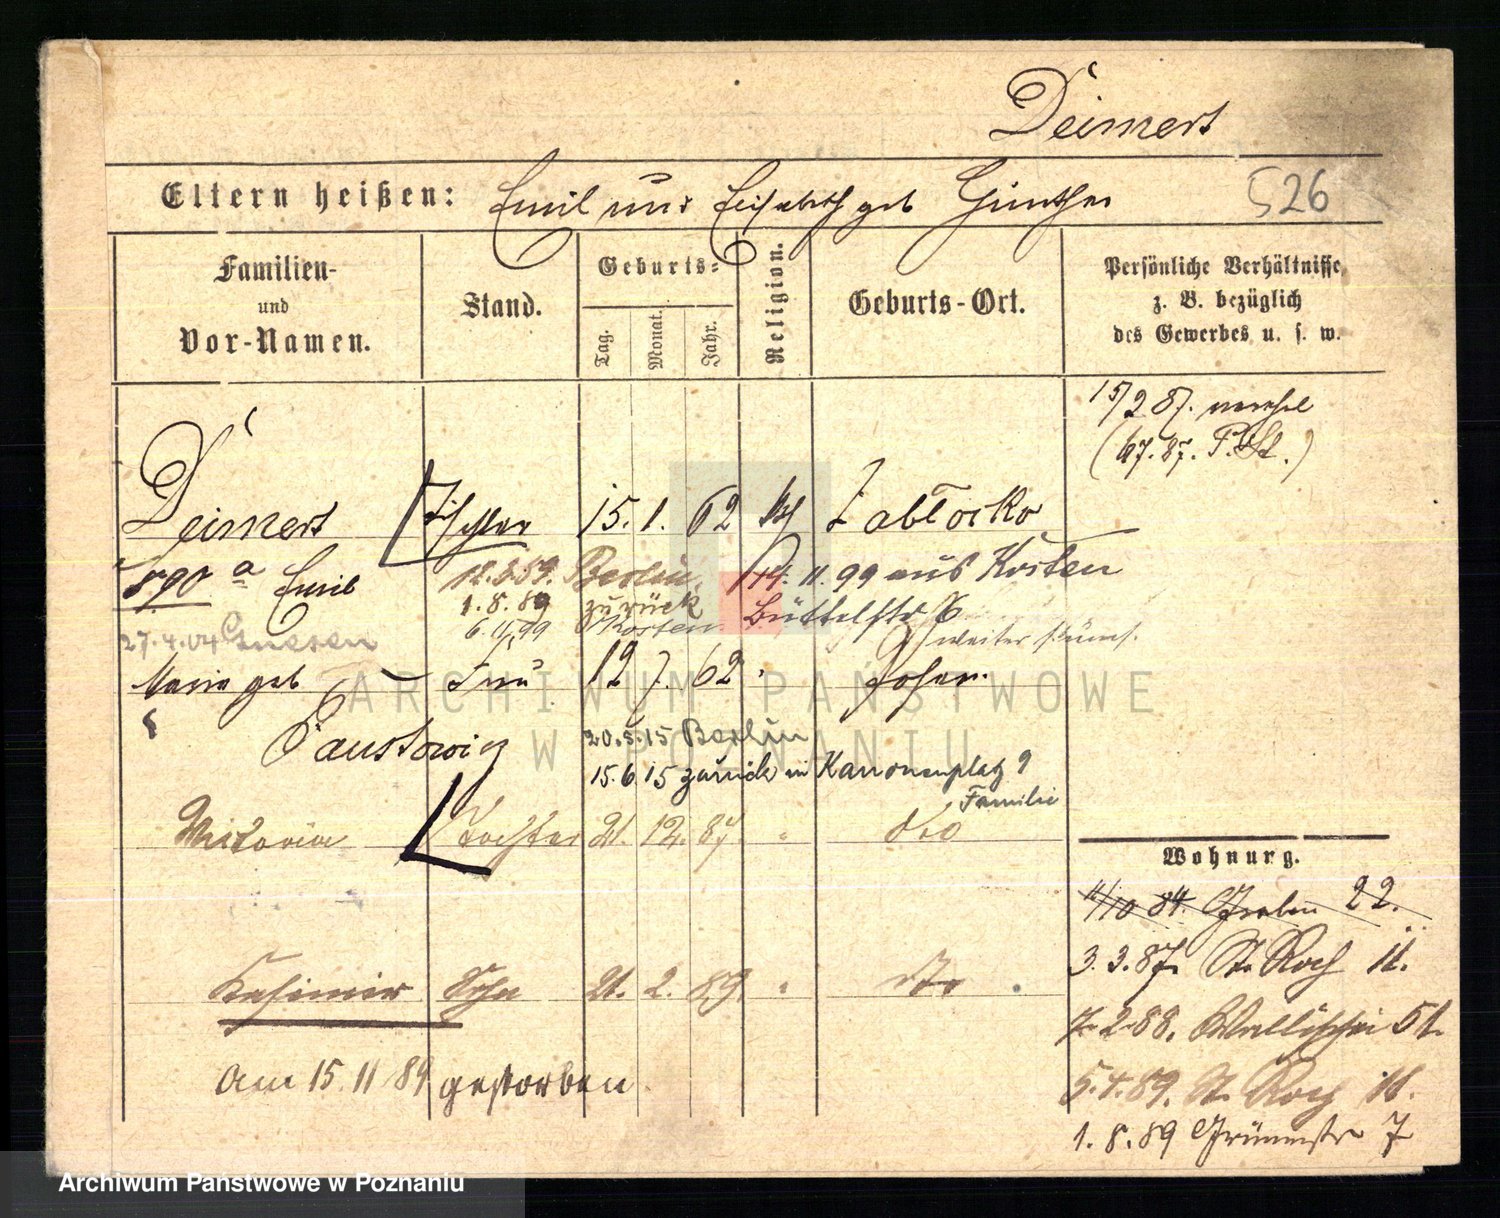 Deimert
Eltern heißen: Emil und Elisabeth geb Günther
526
Familien-
und
Vor-Namen.
Stand.
Geburts-
Tag.
Monat.
Jahr.
Religion.
Geburts-Ort.
Persönliche Verhältnisse
z. B. bezüglich
des Gewerbes u. s. w.
15/2 87.
(67.87. P. St.)
Deimert Tischler 15. 1. 62 kth Zabłocko
Emil 12.3.59. Berlin, 14. 11. 99 aus Kosten
1. 8. 89 zurück Büttelstr 6
6.11.99 Kosten
27.4.04 Gnesen
Maria geb Frau 12 7. 62 Posen.
Faustowicz 20.5.15 Berlin
15.6.15 zurück in Kanonenplatz 9
Familie
Wictoria Tochter 21. 12. 87. " dto
Kasimir Sohn 21. 2. 89. " dto
Am 15. 11 89 gestorben.
Wohnung.
11/10 84. Graben 22.
3. 3. 87. St. Roch 11.
7. 2. 88. Wallischei 51.
5. 4. 89. St. Roch 11.
1. 8. 89 Grünestr 7
ARCHIWUM PAŃSTWOWE
W POZNANIU
Archiwum Państwowe w Poznaniu